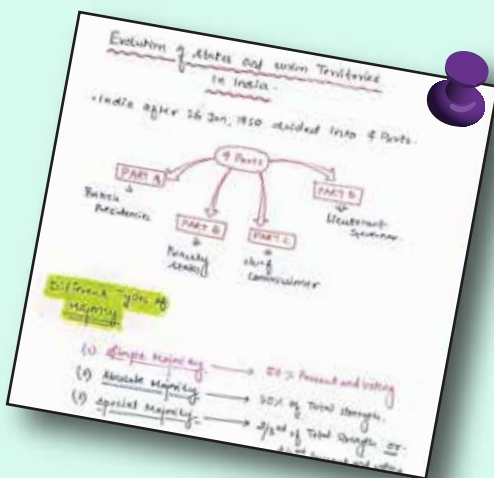 Evolution of States and union Territories
in India.
• India after 26 Jan, 1950 divided into 4 Parts.
4 Parts
PART A
British
Presidencies
PART B
Princely
States
PART C
chief
Commissioner
PART D
Lieutenant
Governor
Different Types of
Majority
(1) Simple Majority → 50% Present and voting
(2) Absolute Majority → 50% of Total strength.
(3) Special Majority → 2/3rd of Total Strength or
2/3rd present and voting